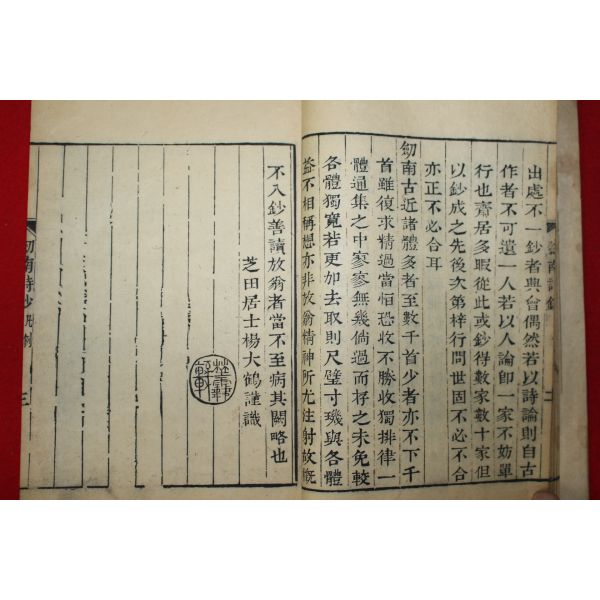 出處不一鈔者與曾偶然若以詩論則自古
作者不可遺一人若以人論即一家不妨單
行也齋居多暇從此或鈔得數家數十家但
以鈔成之先後次第梓行問世固不必不合
亦正不必合耳
劒南古近諸體多者至數千首少者亦不下千
首雖復求精過當恒恐收不勝收獨排律一
體通集之中寥寥無幾倘過而存之未免較
各體獨寬若更加去取則尺璧寸璣與各體
益不相稱想亦非放翁精神所尤注射故概
不入鈔善讀放翁者當不至病其闕略也
芝田居士楊大鶴謹識
劒南詩鈔 凡例
三